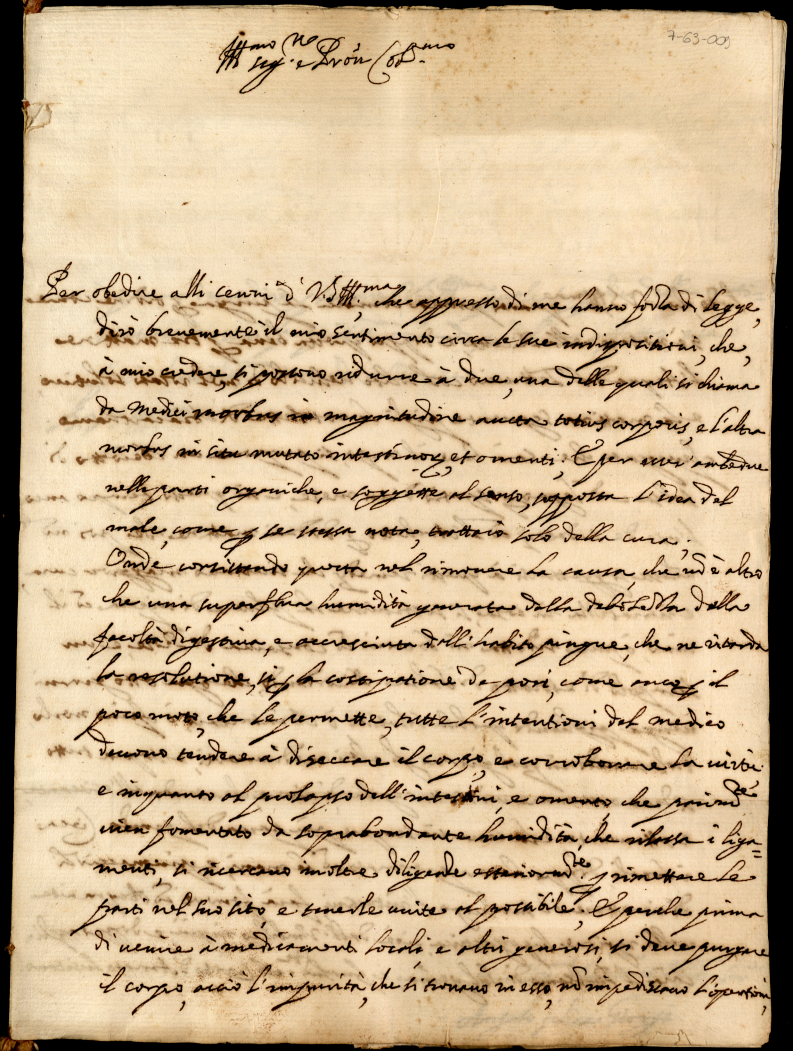 7-63-009
Ill.mo Sig.re e Pron Col.mo
Per obedire alli cenni di V.S. Ill.ma, che appresso di me hanno forza di legge,
dirò brevemente il mio sentimento circa le sue indispositioni, che,
à mio credere, si possono ridurre à due, una delle quali si chiama
da Medici morbus in magnitudine aucta totius corporis, e l'altra
morbus in situ mutato intestinor, et omenti; E per esser ambedue
nelle parti organiche, e soggette al senso, supposta l'idea del
male, come p se stessa nota, trattarò solo della cura.
Onde consistendo questa nel rimovere la causa, che nõ è altro
che una superflua humidità generata dalla debolezza della
facoltà digestiva, e accresciuta dall'habito pingue, che ne ritarda
la resolutione, si p la constipatione de pori, come anco p il
poco moto, che le permette, tutte l'intentioni del medico
devono tendere à diseccare il corpo, e corroborare la virtù
e inquanto al prolapso dell'intestini, e omento, che parim.te
vien fomentato da soprabondante humidità, che rilassa i liga=
menti, si ricercano inoltre diligenze esteriorm.te p rimettere le
parti nel suo sito, e tenerle unite al possibile; E perche prima
di venire à medicamenti locali, e altri generosi, si deve purgare
il corpo, acciò l'impurità, che si trovano in esso, nõ impediscano l'operationi,